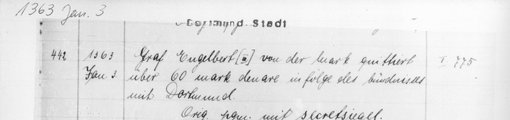 1363 Jan. 3
Dortmund Stadt
442 1363 Graf Engelbert [III] von der Mark quittiert I 775
Jan 3 über 60 mark denare in folge des bündnisses
mit Dortmund.
Orig. pgm. mit secretsiegel.